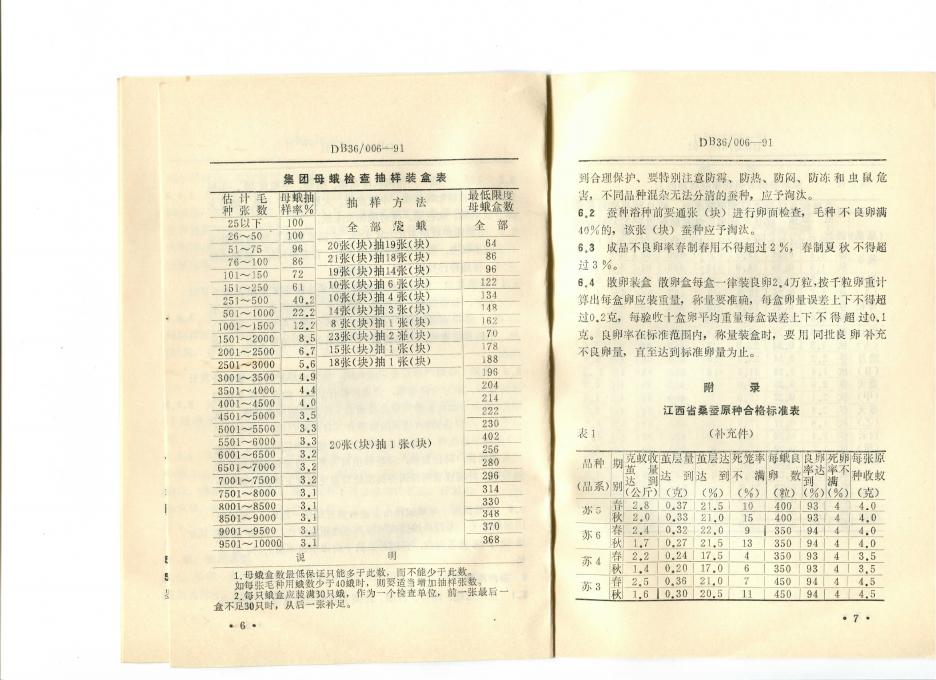 DB36/006—91
集团母蛾检查抽样装盒表
估计毛种张数 母蛾抽样率% 抽样方法 最低限度母蛾盒数
25以下 100 全部袋蛾 全部
26～50 100
51～75 96 20张(块)抽19张(块) 64
76～100 86 21张(块)抽18张(块) 86
101～150 72 19张(块)抽14张(块) 96
151～250 61 10张(块)抽6张(块) 122
251～500 40.2 10张(块)抽4张(块) 134
501～1000 22.2 14张(块)抽3张(块) 148
1001～1500 12.2 8张(块)抽1张(块) 162
1501～2000 8.5 23张(块)抽2张(块) 70
2001～2500 6.7 15张(块)抽1张(块) 178
2501～3000 5.6 18张(块)抽1张(块) 188
3001～3500 4.9 196
3501～4000 4.4 204
4001～4500 4.0 214
4501～5000 3.5 222
5001～5500 3.3 230
5501～6000 3.3 20张(块)抽1张(块) 402
6001～6500 3.2 256
6501～7000 3.2 280
7001～7500 3.2 296
7501～8000 3.1 314
8001～8500 3.1 330
8501～9000 3.1 348
9001～9500 3.1 370
9501～10000 3.1 368
说明
1.母蛾盒数最低保证只能多于此数，而不能少于此数。
如每张毛种用蛾数少于40蛾时，则要适当增加抽样张数。
2.每只蛾盒应装满30只蛾，作为一个检查单位，前一张最后一
盒不足30只时，从后一张补足。
•6•
DB36/006—91
到合理保护、要特别注意防霉、防热、防闷、防冻和虫鼠危
害，不同品种混杂无法分清的蚕种，应予淘汰。
6.2 蚕种浴种前要通张（块）进行卵面检查，毛种不良卵满
40%的，该张（块）蚕种应予淘汰。
6.3 成品不良卵率春制春用不得超过2%，春制夏秋不得超
过3%。
6.4 散卵装盒 散卵盒每盒一律装良卵2.4万粒，按千粒卵重计
算出每盒卵应装重量，称量要准确，每盒卵量误差上下不得超
过0.2克，每验收十盒卵平均重量每盒误差上下不得超过0.1
克。良卵率在标准范围内，称量装盒时，要用同批良卵补充
不良卵量，直至达到标准卵量为止。
附录
江西省桑蚕原种合格标准表
表1 （补充件）
品种(品系) 期别 克蚁收茧量达到(公斤) 茧层量达到(克) 茧层达到(%) 死笼率不满(%) 每蛾良卵数(粒) 良卵率达到(%) 死卵率不满(%) 每张原种收蚁(克)
苏5 春 2.8 0.37 21.5 10 400 93 4 4.0
秋 2.0 0.33 21.0 15 400 93 4 4.0
苏6 春 2.4 0.32 22.0 9 350 94 4 4.0
秋 1.7 0.27 21.5 13 350 94 4 4.0
苏4 春 2.2 0.24 17.5 4 350 93 4 3.5
秋 1.4 0.20 17.0 6 350 93 4 3.5
苏3 春 2.5 0.36 21.0 7 450 94 4 4.5
秋 1.6 0.30 20.5 11 450 94 4 4.5
•7•